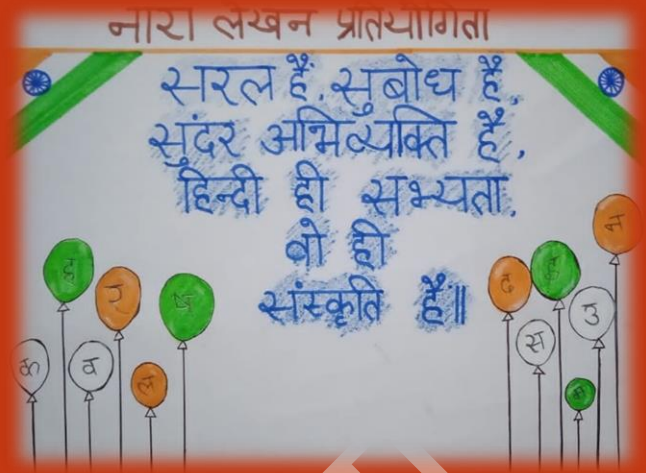 नारा लेखन प्रतियोगिता
सरल हैं, सुबोध है,
सुंदर अभिव्यक्ति है,
हिन्दी ही सभ्यता,
वो ही
संस्कृति हैं॥
र
क
व
ल
द
स
उ